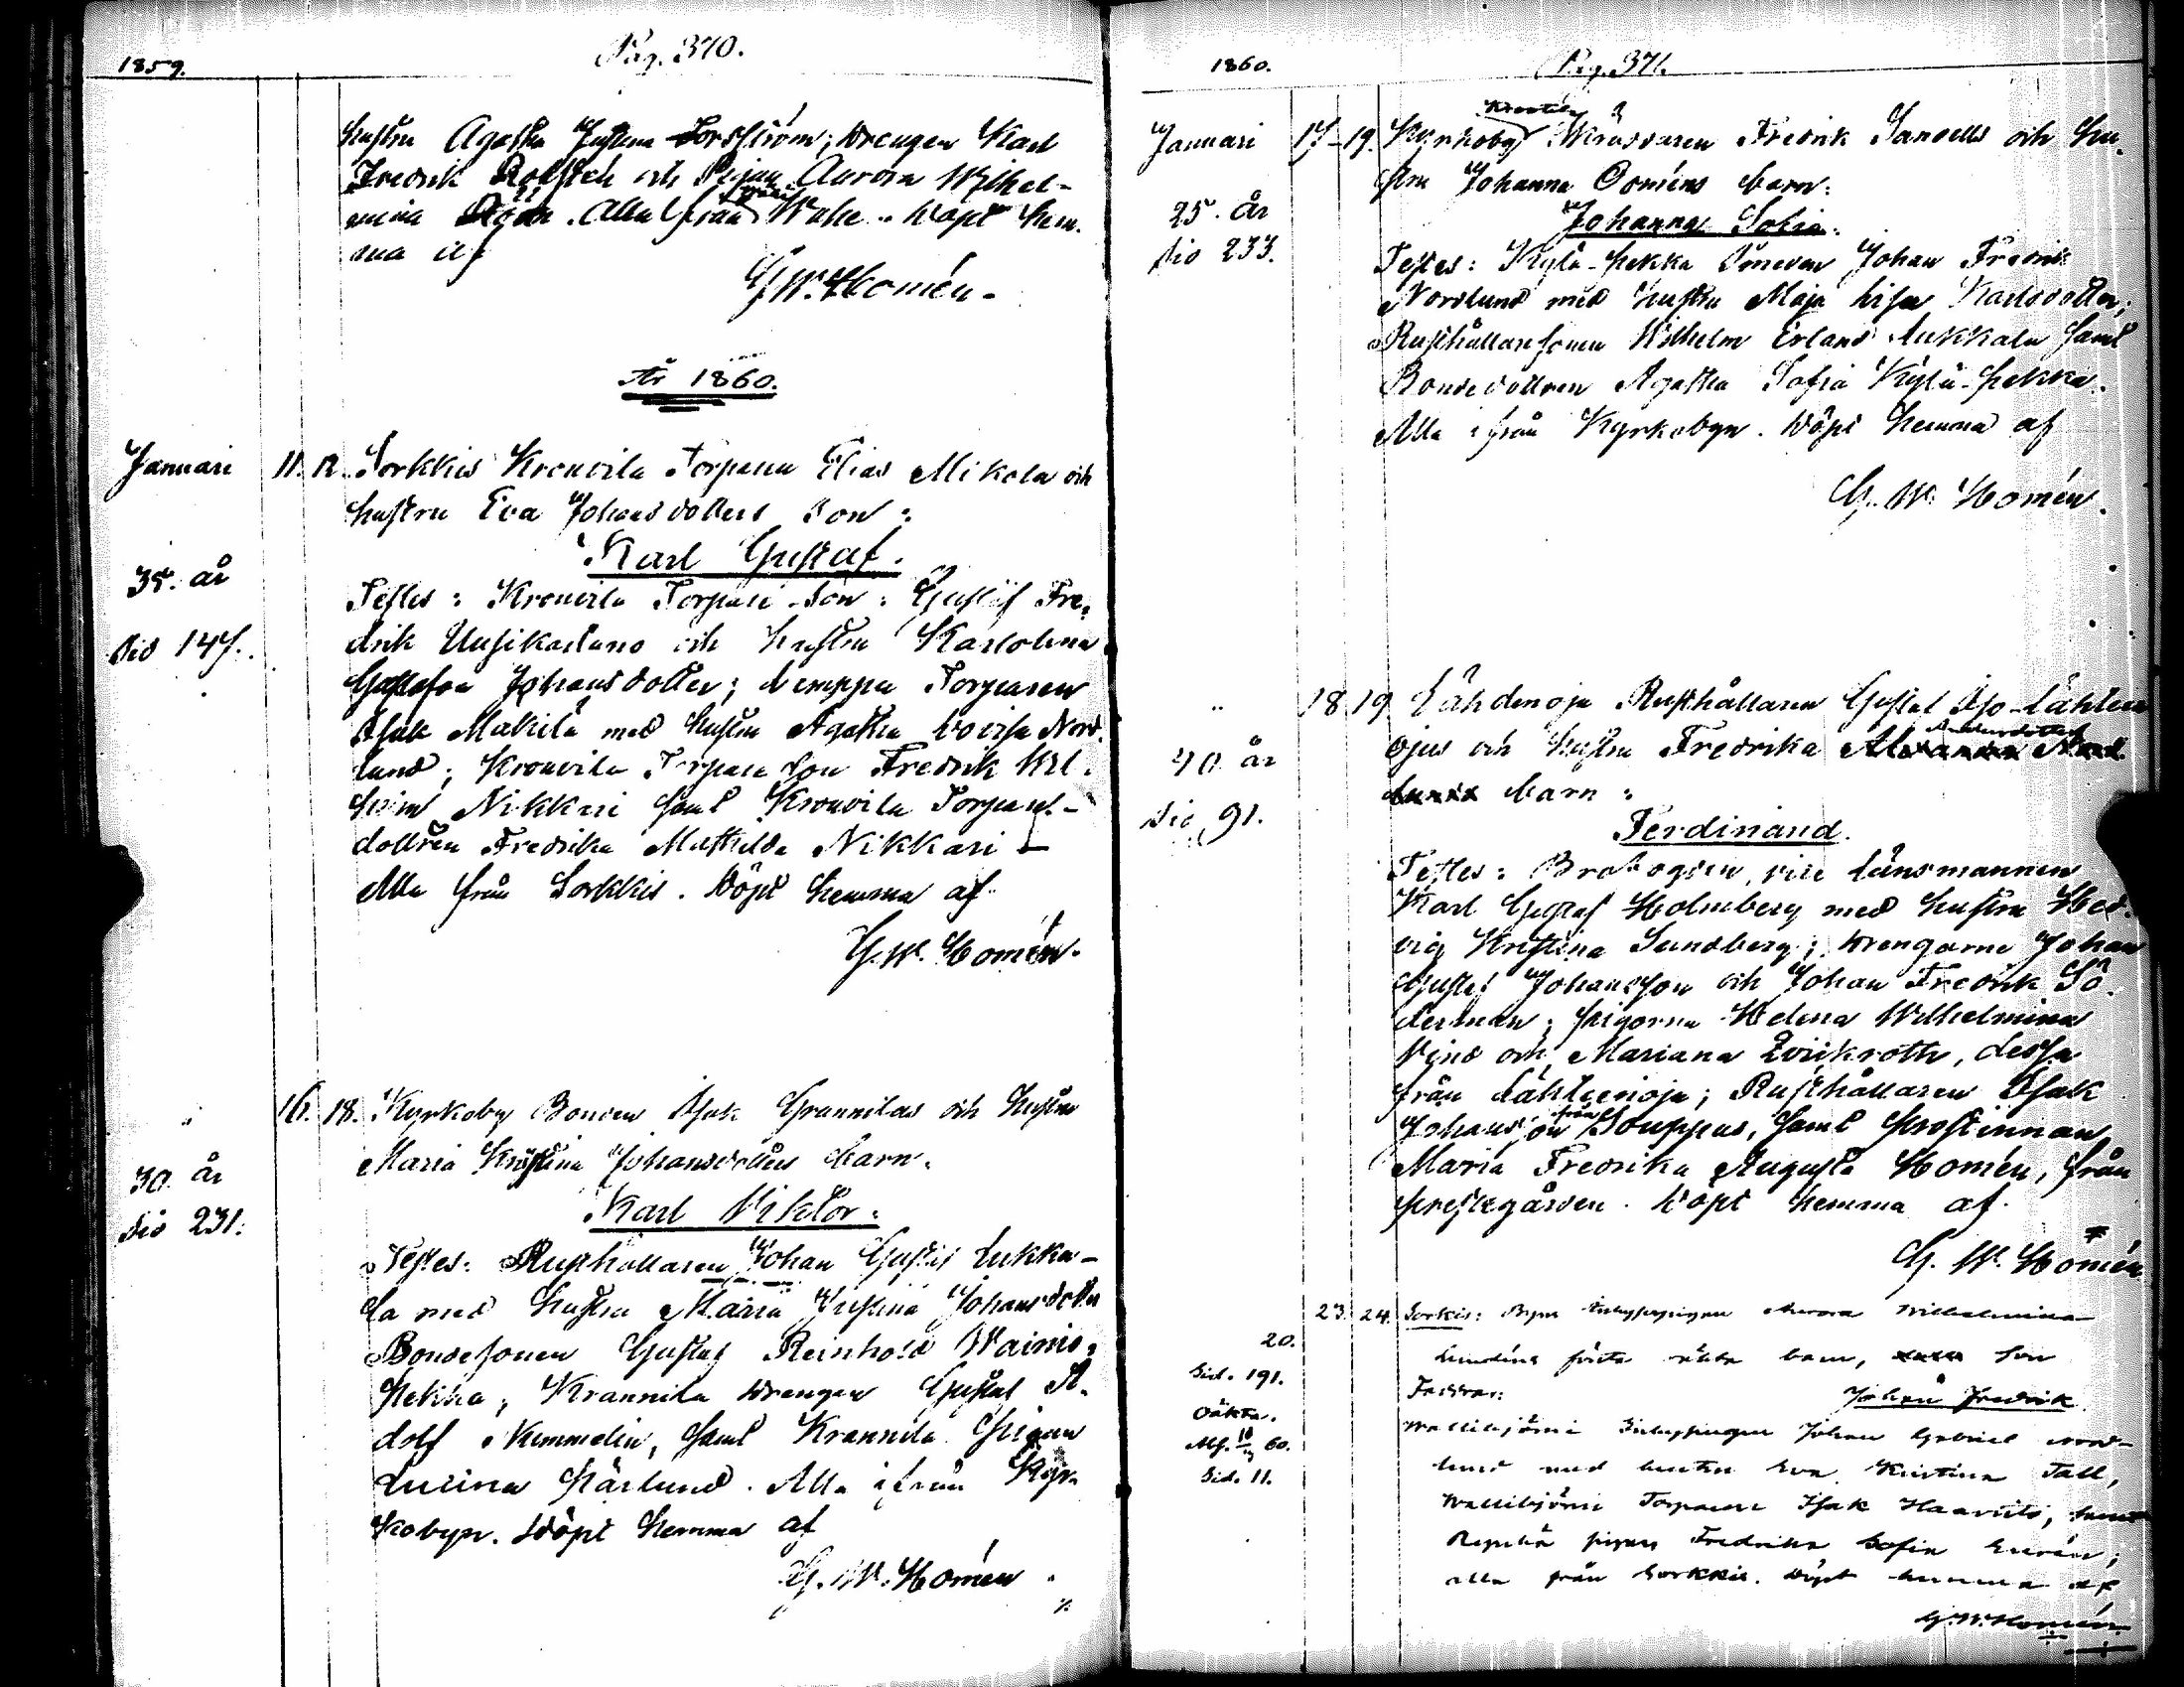 1859.
Pag. 370.
hustru Agatha Justina Forsström; Drengen Karl
Fredrik Rolsten och Pigan Aurora Wilhel-
mina Alla från döpt hem-
ma af
G. W. Homén.
År 1860.
Januari 11. 12. Sorkkis Kronvila Torparen Elias Mikola och
hustru Eva Johansdotters Son:
Karl Gustaf.
35. år
Testes: Kronvila Torpare-Son: Gustaf Fre-
Sid 147.
drik Uusikartano och hustru Karolina
Gustafva Johansdotter; Torparen
Isak Mäkilä med hustru Agatha Lovisa Nord-
lund; Kronvila Torpare Son Fredrik Wil-
helm Nikkari samt Kronvila Torpare-
dottren Fredrika Mathilda Nikkari —
Alla från Sorkkis. Döpt hemma af
G. W. Homén.
" 16. 18. Kyrkoby Bonden Isak Grannilas och hustru
Maria Kristina Johansdotters barn.
30. år
Karl Viktor.
Sid 231.
Testes: Rusthållaren Johan Gustaf Lukka-
la med hustru Maria Justina Johansdotter
Bondesonen Gustaf Reinhold Wainio-
Pekka; Krannila Drengen Gustaf A-
dolf Nummelin, samt Krannila Pigan
Lucina Härlund. Alla ifrån Kyr-
kobyn. Döpt hemma af
G. W. Homén.
1860.
Pag. 371.
Januari 17 - 19. Kyrkoby Skräddaren Fredrik Sandells och hu-
stru Johanna Oreméns barn:
25. år
Johanna Sofia.
Sid 233.
Testes: Kylä-Pekka Johan Fredrik
Nordlund med hustru Maja Lisa Karlsdotter;
Rusthållaresonen Wilhelm Erland Lukkala samt
Bondedottren Agatha Sofia Kylä-Pekka.
Alla ifrån Kyrkobyn. Döpt hemma af
G. W. Homén.
" 18 19 Lähdenoja Rusthållaren Gustaf Iso-Lähteen
Andersdotters
ojas och hustru Fredrika
40 år
barn:
Sid 91.
Ferdinand.
Testes: Brofogden, vice länsmannen
Karl Gustaf Holmberg med hustru Hed-
vig Kristina Sundberg; drengarne Johan
Gustaf Johansson och Johan Fredrik Sö-
derman; pigorna Helena Wilhelmina
Vind och Mariana Qvickroth, dessa
från Lähteenoja; Rusthållaren Isak
Johansson från Souppas, samt Prostinnan
Maria Fredrika Augusta Homén, från
prestegården. Döpt hemma af
G. W. Homén
23. 24. Sorkis: Inhysespigan Aurora Wilhelmina
20.
Lundéns första oäkta barn, Son
Sid. 191.
Faddrar:
Johan Fredrik
Oäkta.
Wallibjörni Inhysesdrengen Johan Gabriel Nord-
60.
lund med hustru Eva Kristina Tall,
Sid. 11.
Wallibjörni Torparen Isak Haavisto, samt
pigan Fredrika Sofia
alla från Sorkkis. Döpt hemma af
G. W. Homén.